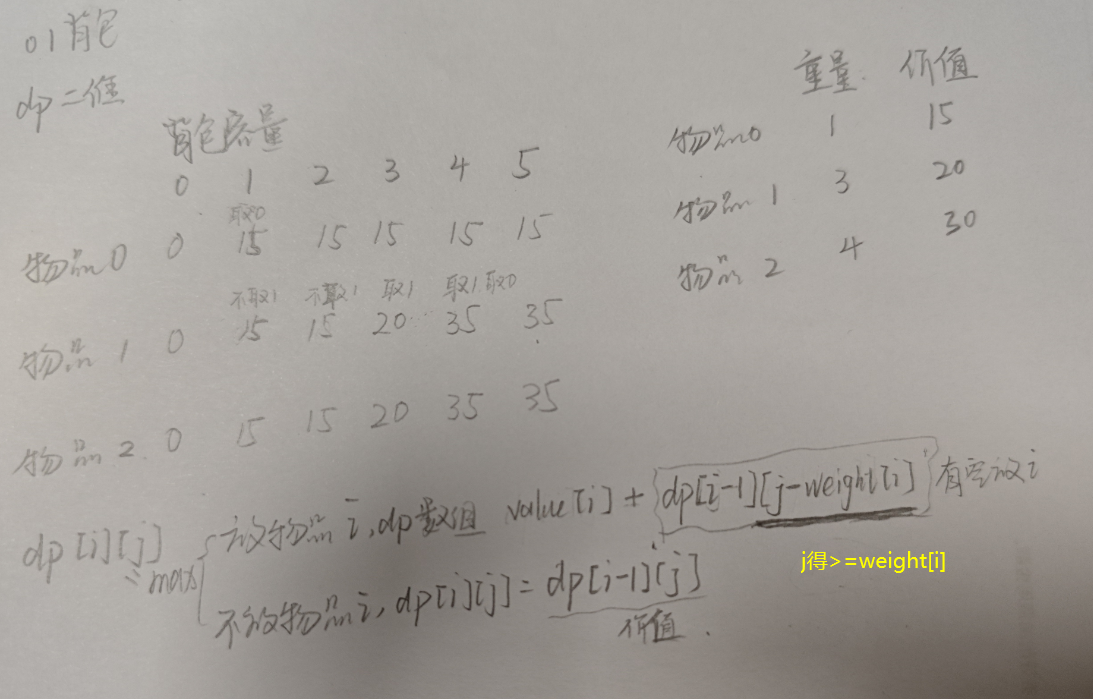 01背包
dp二维
背包容量
0 1 2 3 4 5
取0
物品0 0 15 15 15 15 15
不取1 不取1 取1 取1 取0
物品1 0 15 15 20 35 35
物品2 0 15 15 20 35 35
重量 价值
物品0 1 15
物品1 3 20
物品2 4 30
dp[i][j]
max
放物品i,dp数组 value[i] + dp[i-1][j-weight[i]] 有空放i
不放物品i,dp[i][j] = dp[i-1][j]
价值
j得>=weight[i]